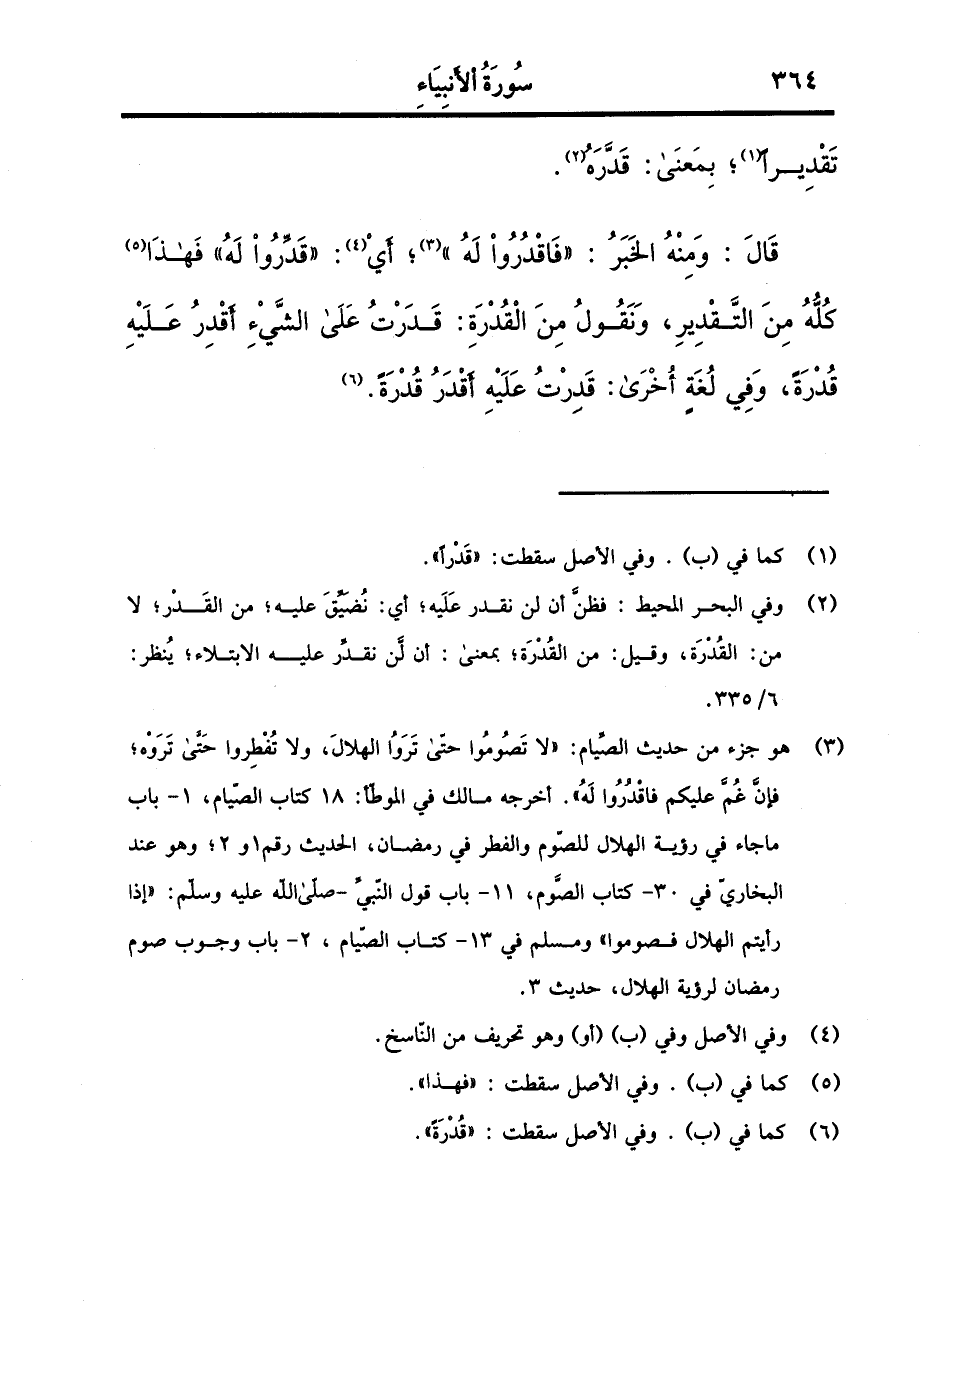 ٣٦٤
سُورَةُ الأَنبِيَاءِ
تَقْدِيـراً(١)؛ بِمَعنَىٰ: قَدَّرَهُ(٢).
قَالَ : وَمِنْهُ الخَبَرُ : «فَاقْدُرُواْ لَهُ »(٣)؛ أَيْ(٤): «قَدِّرُواْ لَهُ» فَهـٰذَا(٥)
كُلُّهُ مِنَ التَّـقْدِيرِ، وَنَقُـولُ مِنَ الْقُدْرَةِ: قَـدَرْتُ عَلَىٰ الشَّيْءِ أَقْدِرُ عَـلَيْهِ
قُدْرَةً، وَفِي لُغَةٍ أُخْرَىٰ: قَدِرْتُ عَلَيْهِ أَقْدَرُ قُدْرَةً.(٦)
(١) كما في (ب) . وفي الأصل سقطت: «قَدْراً».
(٢) وفي البحـر المحيط : فظنَّ أن لن نقـدر عَلَيه؛ أي: نُضَيِّقَ عليـه؛ من القَـدْر؛ لا
من: القُدْرَة، وقـيل: من القُدْرَة؛ بمعنىٰ : أن لَّن نقـدِّر عليـه الابتـلاء؛ يُنظر:
٦/ ٣٣٥.
(٣) هو جزء من حديث الصِّيام: «لا تَصُومُوا حتّىٰ تَرَوُا الهلالَ، ولا تُفْطِروا حَتَّىٰ تَرَوْه؛
فإنَّ غُمَّ عليكم فاقْدُرُوا لَهُ». أخرجه مـالك في الموطّأ: ١٨ كتاب الصّيام، ١- باب
ماجاء في رؤيـة الهلال للصّوم والفطر في رمضـان، الحديث رقم١و ٢؛ وهو عند
البخاريّ في ٣٠- كتاب الصَّوم، ١١- باب قول النّبيِّ -صلّىٰ اللّه عليه وسلّم: «إذا
رأيتم الهلال فـصوموا» ومـسلم في ١٣- كتـاب الصّيام ، ٢- باب وجـوب صوم
رمضان لرؤية الهلال، حديث ٣.
(٤) وفي الأصل وفي (ب) (أو) وهو تحريف من النّاسخ.
(٥) كما في (ب) . وفي الأصل سقطت : «فهـذا».
(٦) كما في (ب) . وفي الأصل سقطت : «قُدْرَةً».